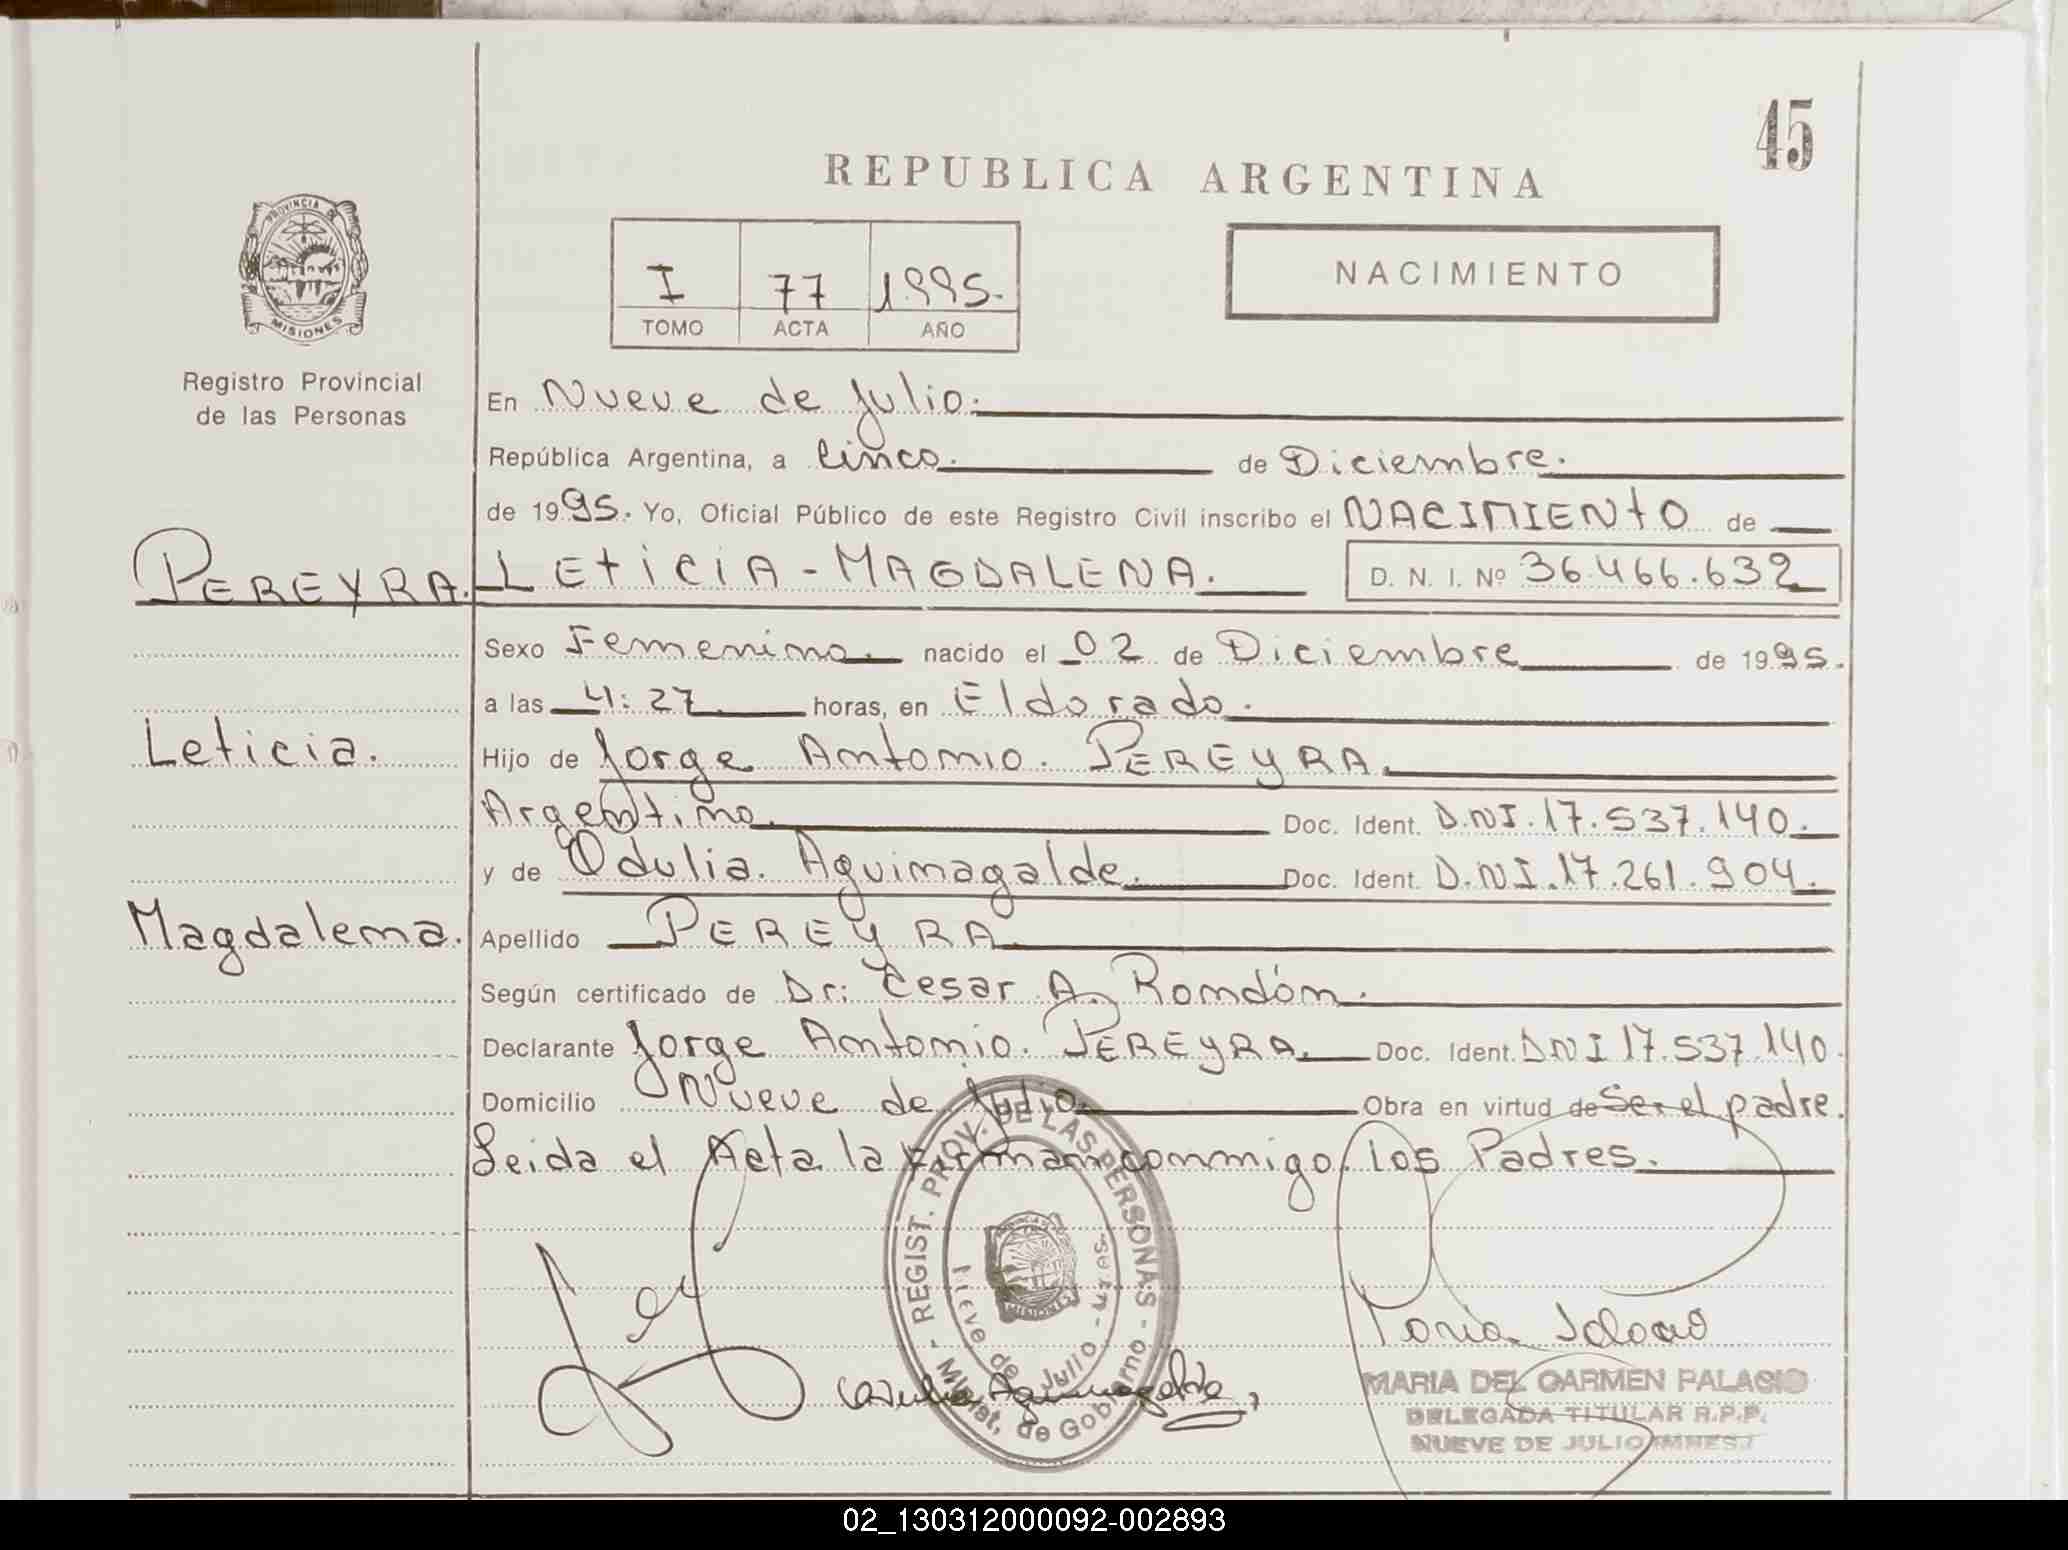 45
REPUBLICA ARGENTINA
PROVINCIA DE
MISIONES
I 77 1995.
TOMO ACTA AÑO
NACIMIENTO
Registro Provincial
de las Personas
En Nueve de Julio.
República Argentina, a Cinco. de Diciembre.
de 1995. Yo, Oficial Público de este Registro Civil inscribo el NACIMIENTO de
PEREYRA. LETICIA-MAGDALENA. D. N. I. Nº 36.466.632
Sexo Femenino. nacido el 02 de Diciembre de 1995.
a las 4:27 horas, en Eldorado.
Leticia. Hijo de Jorge Antonio. PEREYRA.
Argentino. Doc. Ident. D.N.I. 17.537.140.
y de Odulia. Aguinagalde. Doc. Ident. D.N.I. 17.261.904.
Magdalena. Apellido PEREYRA
Según certificado de Dr: Cesar A. Romdóm.
Declarante Jorge Antonio. PEREYRA. Doc. Ident. DNI 17.537.140.
Domicilio Nueve de Julio Obra en virtud de Ser el padre.
Leida el Acta la Firman conmigo. los Padres.
- REGIST. PROV. DE LAS PERSONAS -
Minist. de Gobierno
Nueve de Julio - Mnes.
MISIONES
Aguinagalde
MARIA DEL CARMEN PALACIO
DELEGADA TITULAR R.P.P.
NUEVE DE JULIO (MNES.)
02_130312000092-002893